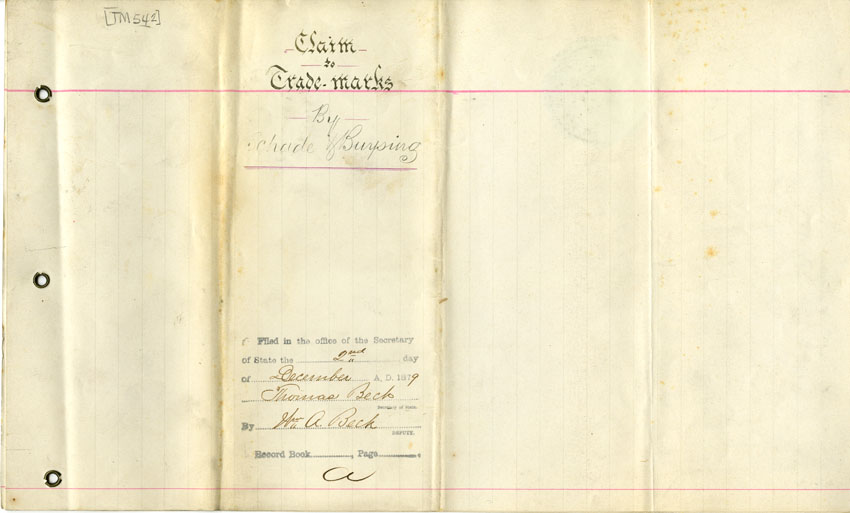 [TM542]
Claim
to
Trade-marks
By
Schade & Buysing
Filed in the office of the Secretary
of State the 2nd day
of December A. D. 1879
Thomas Beck
Secretary of State.
By Wm A. Beck
DEPUTY.
Record Book, Page
a